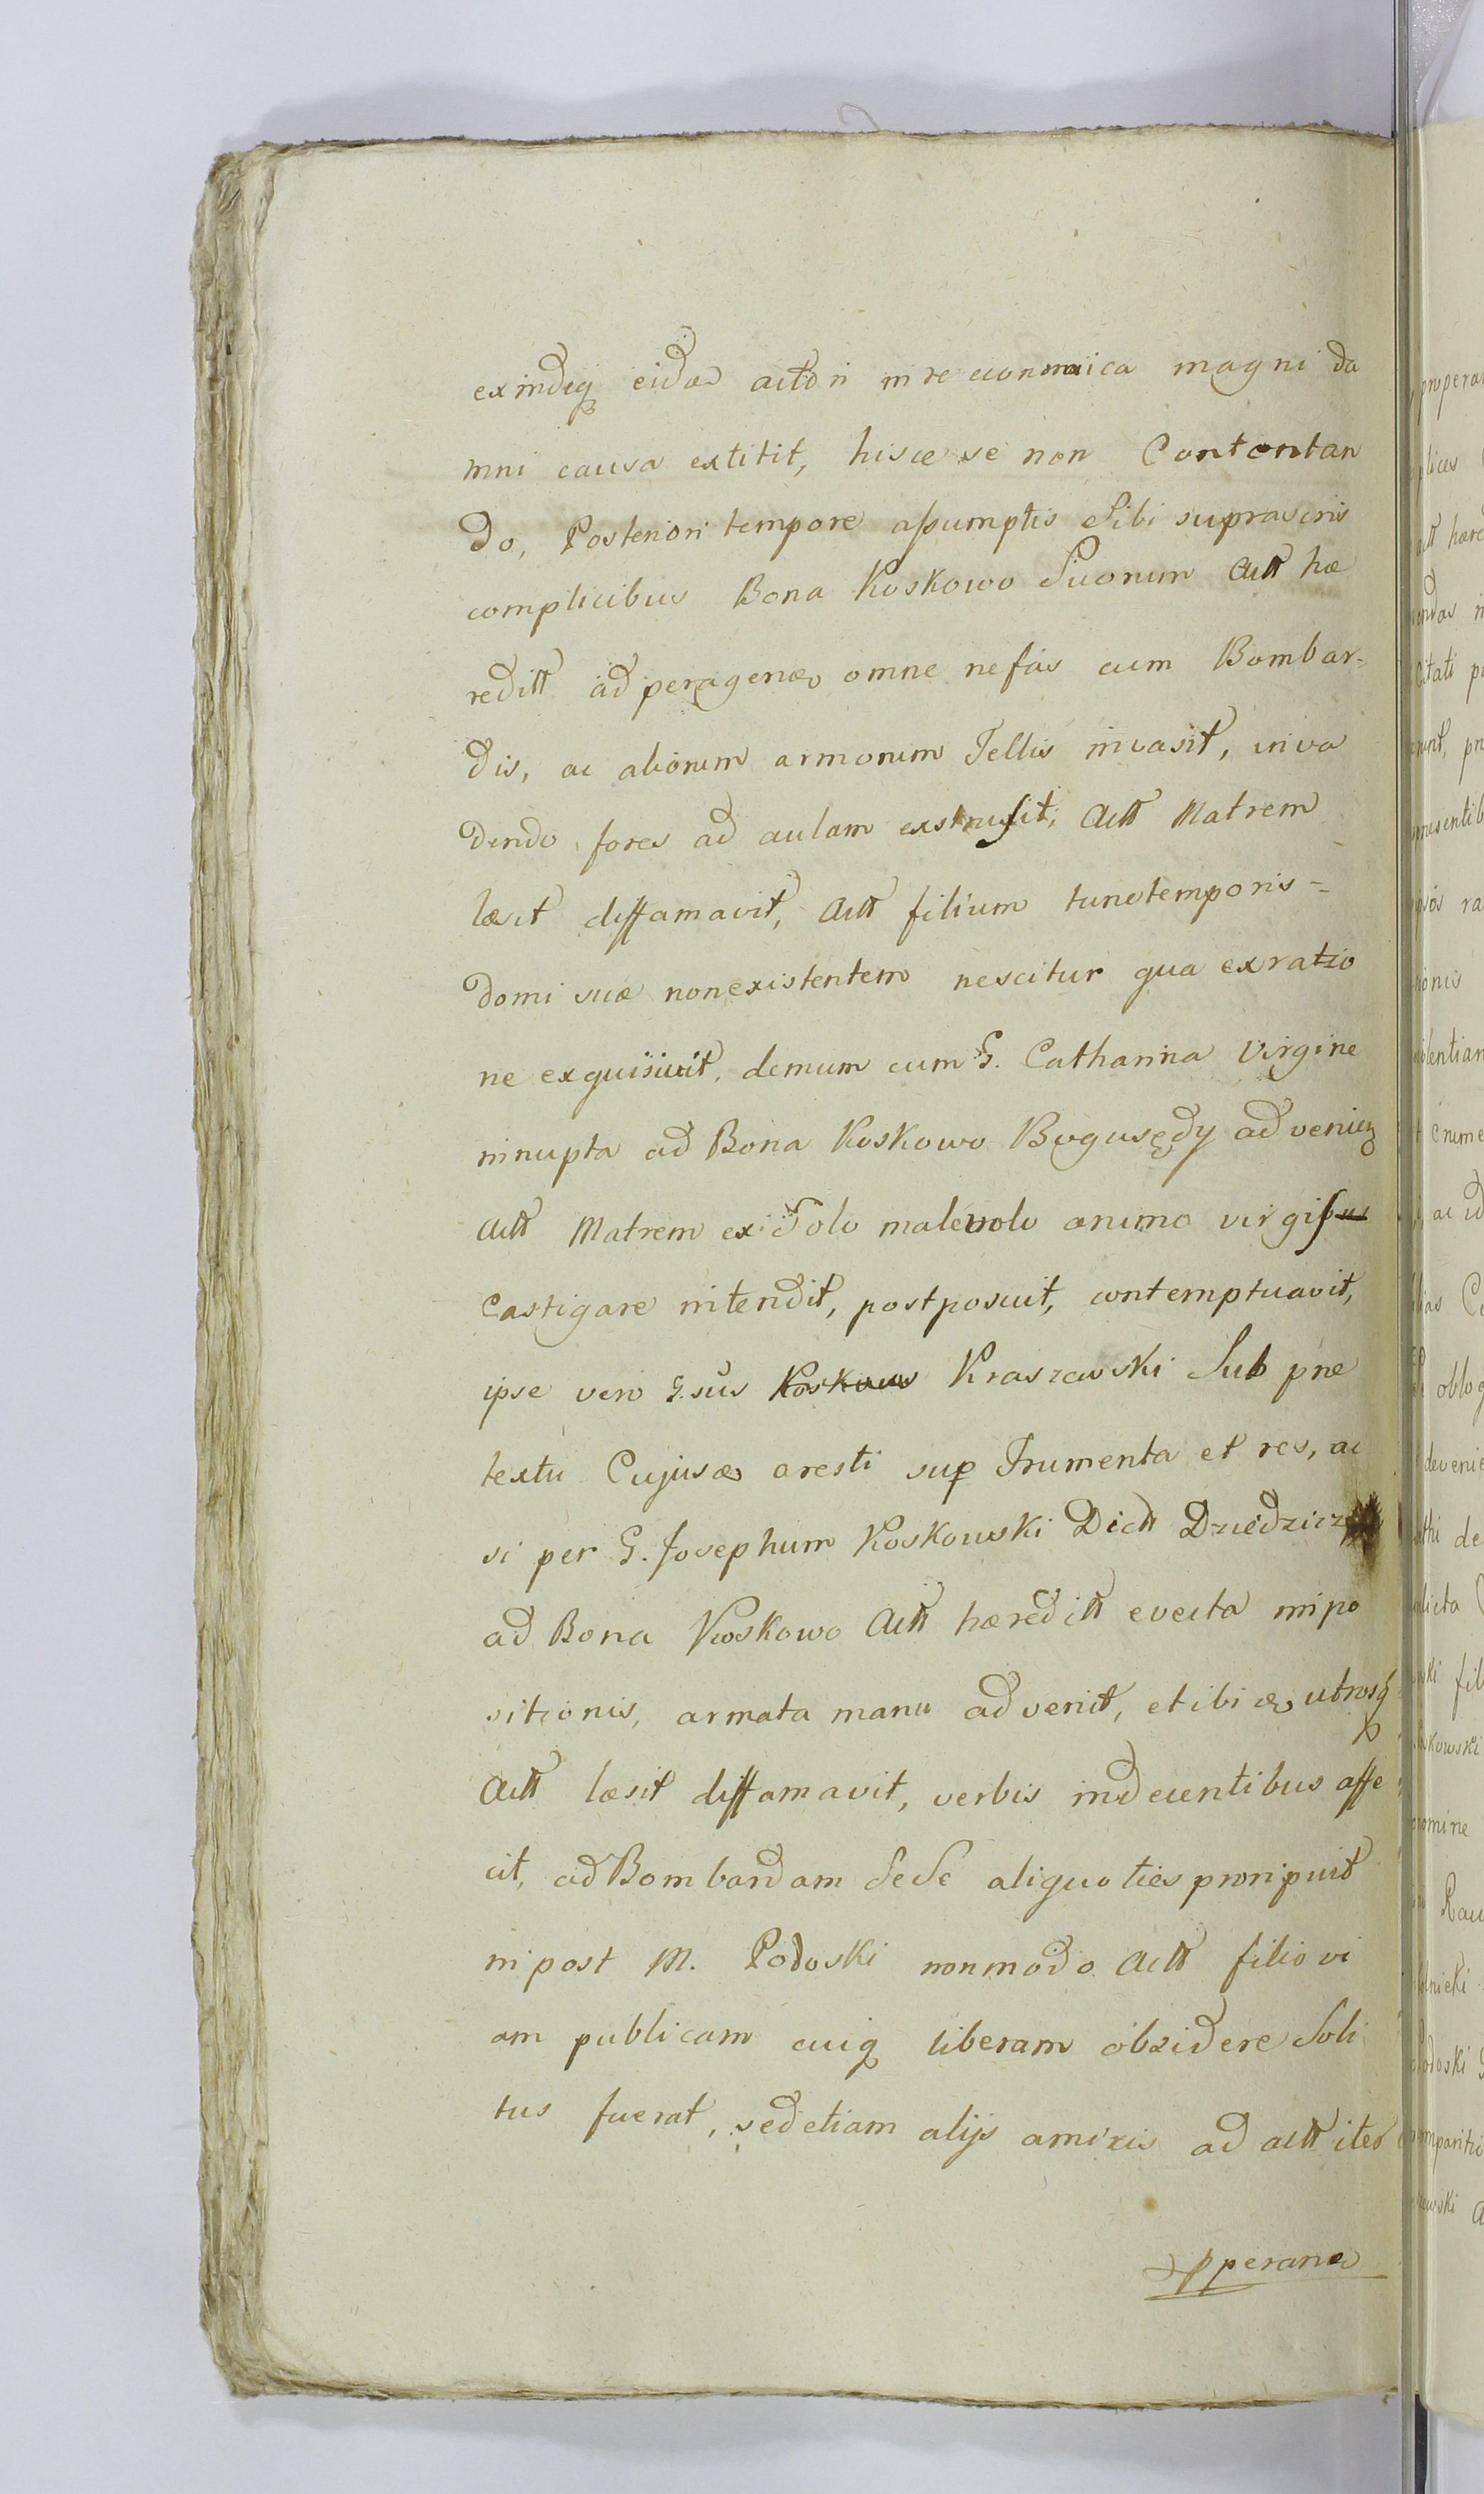 exindeq eidem actori in re economica magni da
mni causa extitit, hisce se non Contentan
do, Posteriori tempore assumptis Sibi suprascris
complicibus Bona Koskowo Suorum Actt hæ
reditt ad peragend omne nefas cum Bombar=
dis, ac aliorum armorum Tellis invasit, inva
dendo fores ad aulam exstrusit, Actt Matrem
læsit diffamavit, Actt filium tunctemporis=
domi suæ nonexistentem nescitur qua exratio
ne exquisivit, demum cum G. Catharina Virgine
innupta ad Bona Koskowo Bogusędy adveniens
Actt Matrem ex dolo malevolo animo virgis
Castigare intendit, postposuit, contemptuavit,
ipse vero Gsus Koskows Kraszewski Sub præ
textu Cujusd aresti sup Frumenta et res, ac
si per G. Josephum Koskowski Dictt Dziedzicz
ad Bona Koskowo Actt hæreditt evecta impo
sitionis, armata manu advenit, et ibid utrosq
Actt læsit diffamavit, verbis indecentibus affe
cit, ad Bombardam Sese aliquoties proripuit
inpost M. Podoski nonmodo Actt filio vi
am publicam cuiq liberam obsidere Soli
tus fuerat, sed etiam alijs amicis ad actt iter
pperand

properan
plices
actt hære
endas in
Citati p
erunt, pr
præsentib
ra
ionis
violentiam
enume
ac id
Ca
oblog
devenie
de
dicta
ski fil
Koskowski
nomine
Raw
Podoski G
comparitio
szewski A